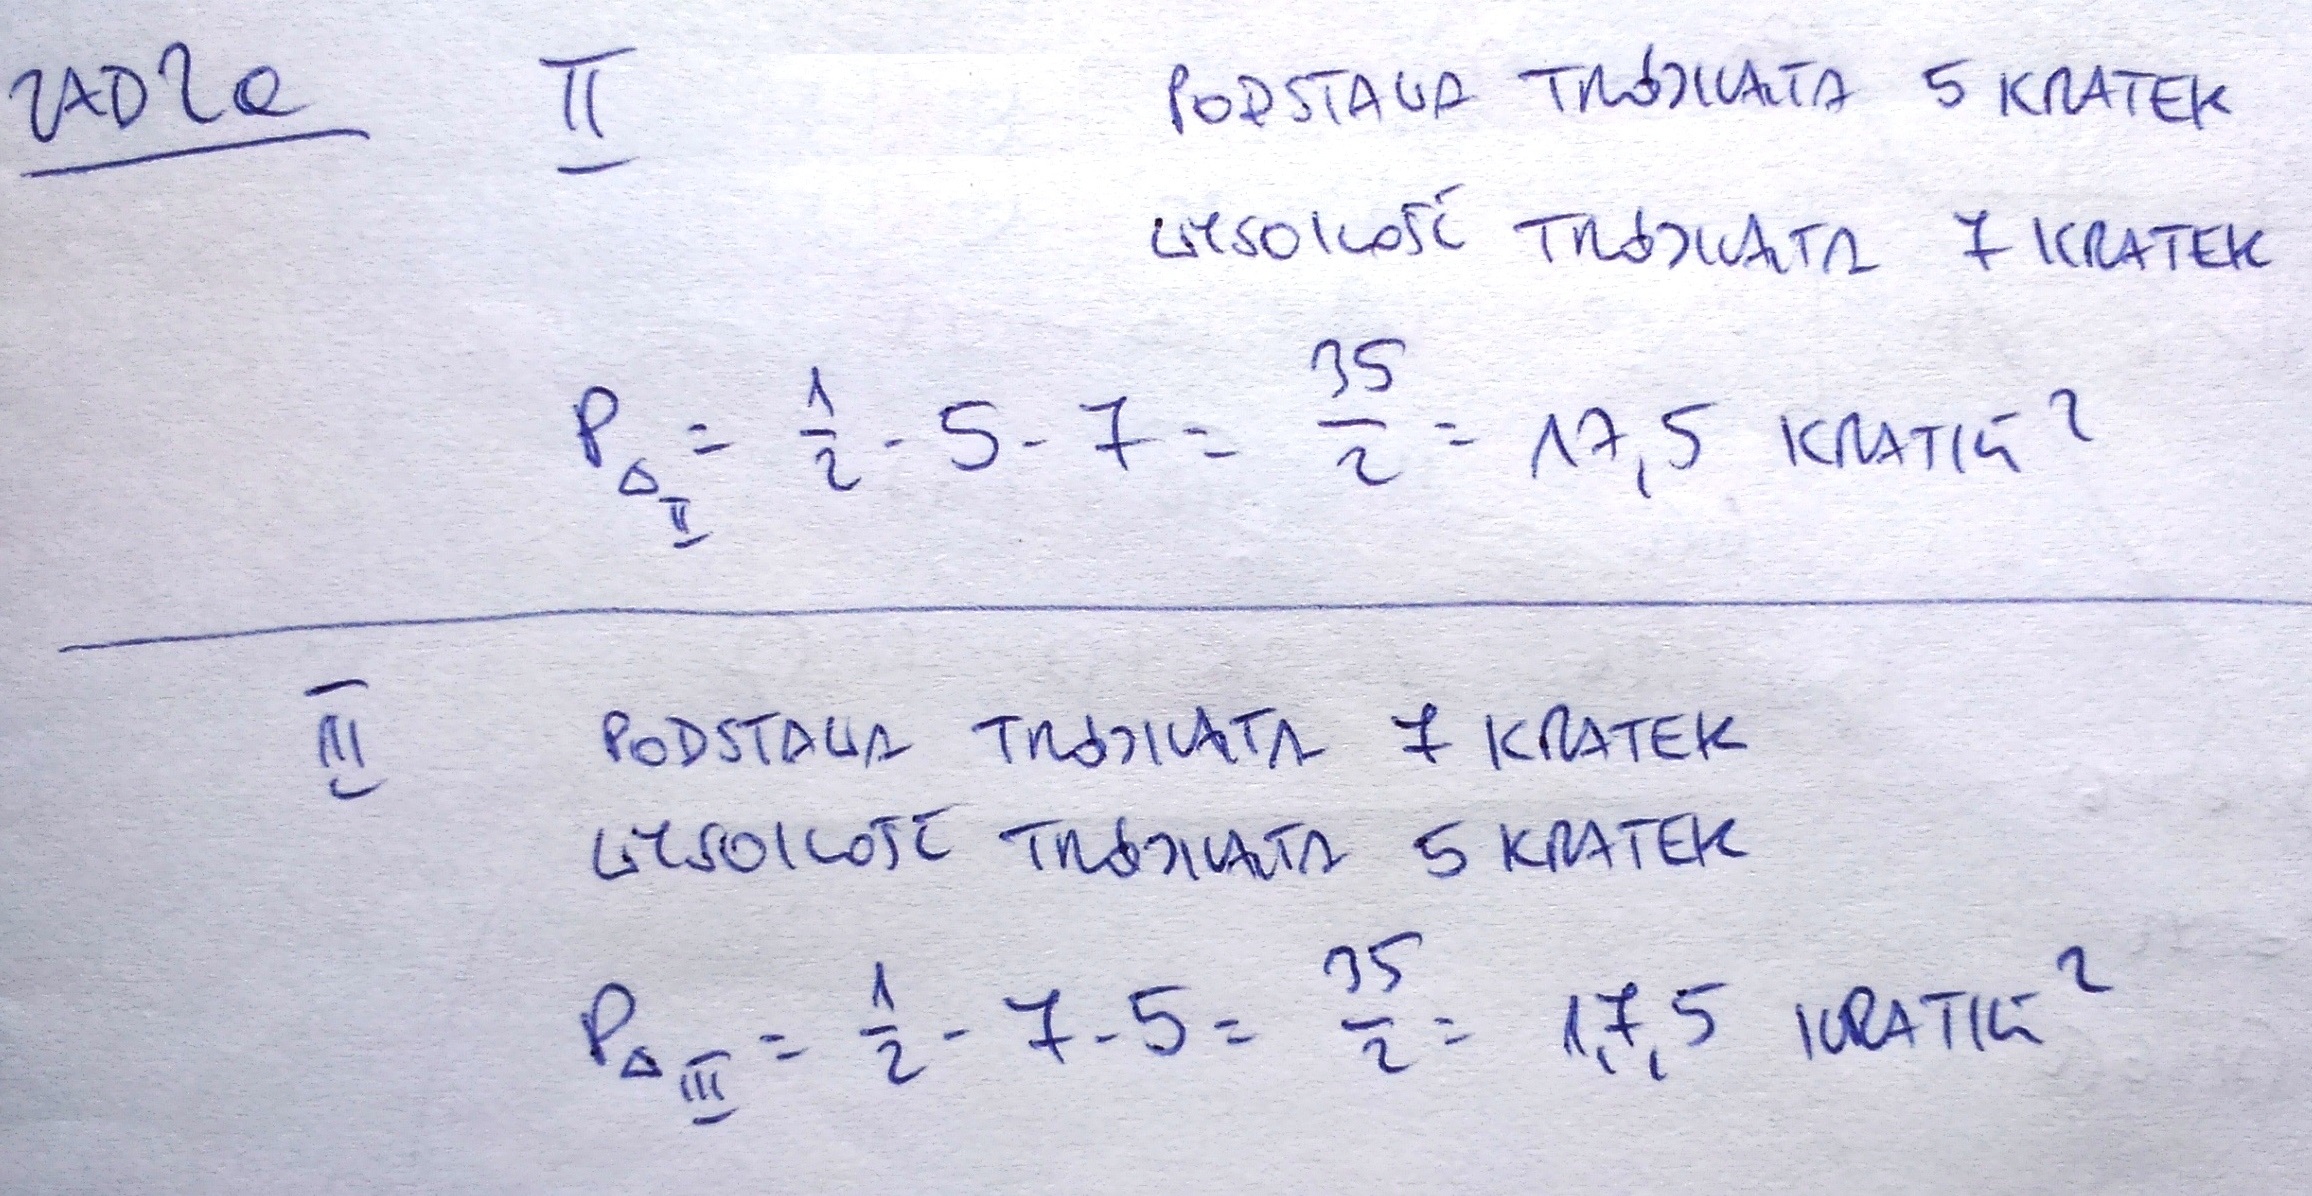 ZAD 2a II PODSTAWA TRÓJKĄTA 5 KRATEK
WYSOKOŚĆ TRÓJKĄTA 7 KRATEK
P△II = 1/2 · 5 · 7 = 35/2 = 17,5 KRATKI²
III PODSTAWA TRÓJKĄTA 7 KRATEK
WYSOKOŚĆ TRÓJKĄTA 5 KRATEK
P△III = 1/2 · 7 · 5 = 35/2 = 17,5 KRATKI²